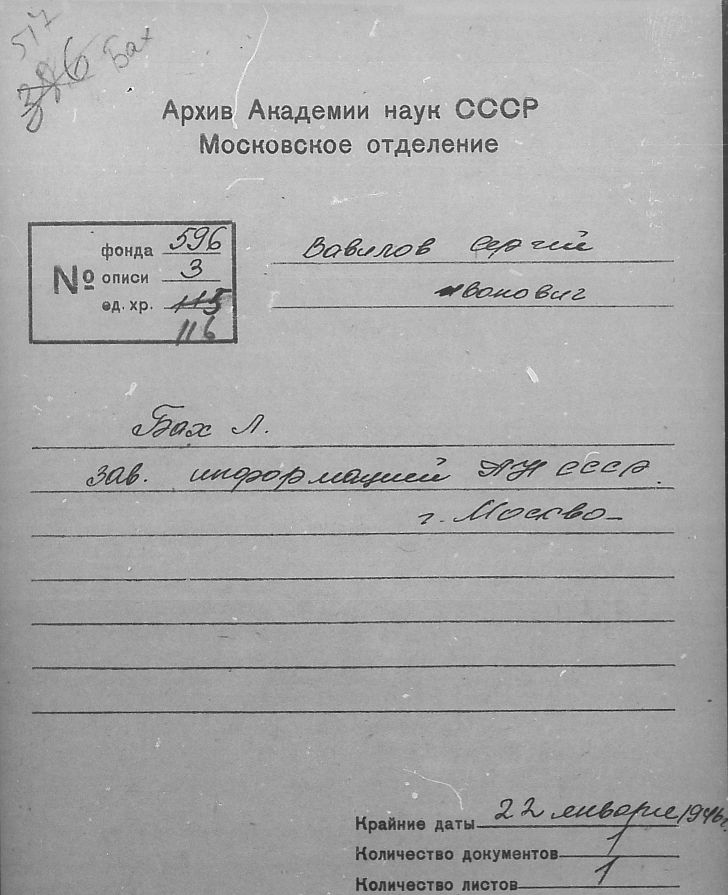 517
396 Бах
Архив Академии наук СССР
Московское отделение
№
фонда 596
описи 3
ед. хр. 115
116
Вавилов Сергей
Иванович
Бах Л.
зав. информацией АН СССР.
г. Москва
Крайние даты 22 января 1946 г.
Количество документов 1
Количество листов 1